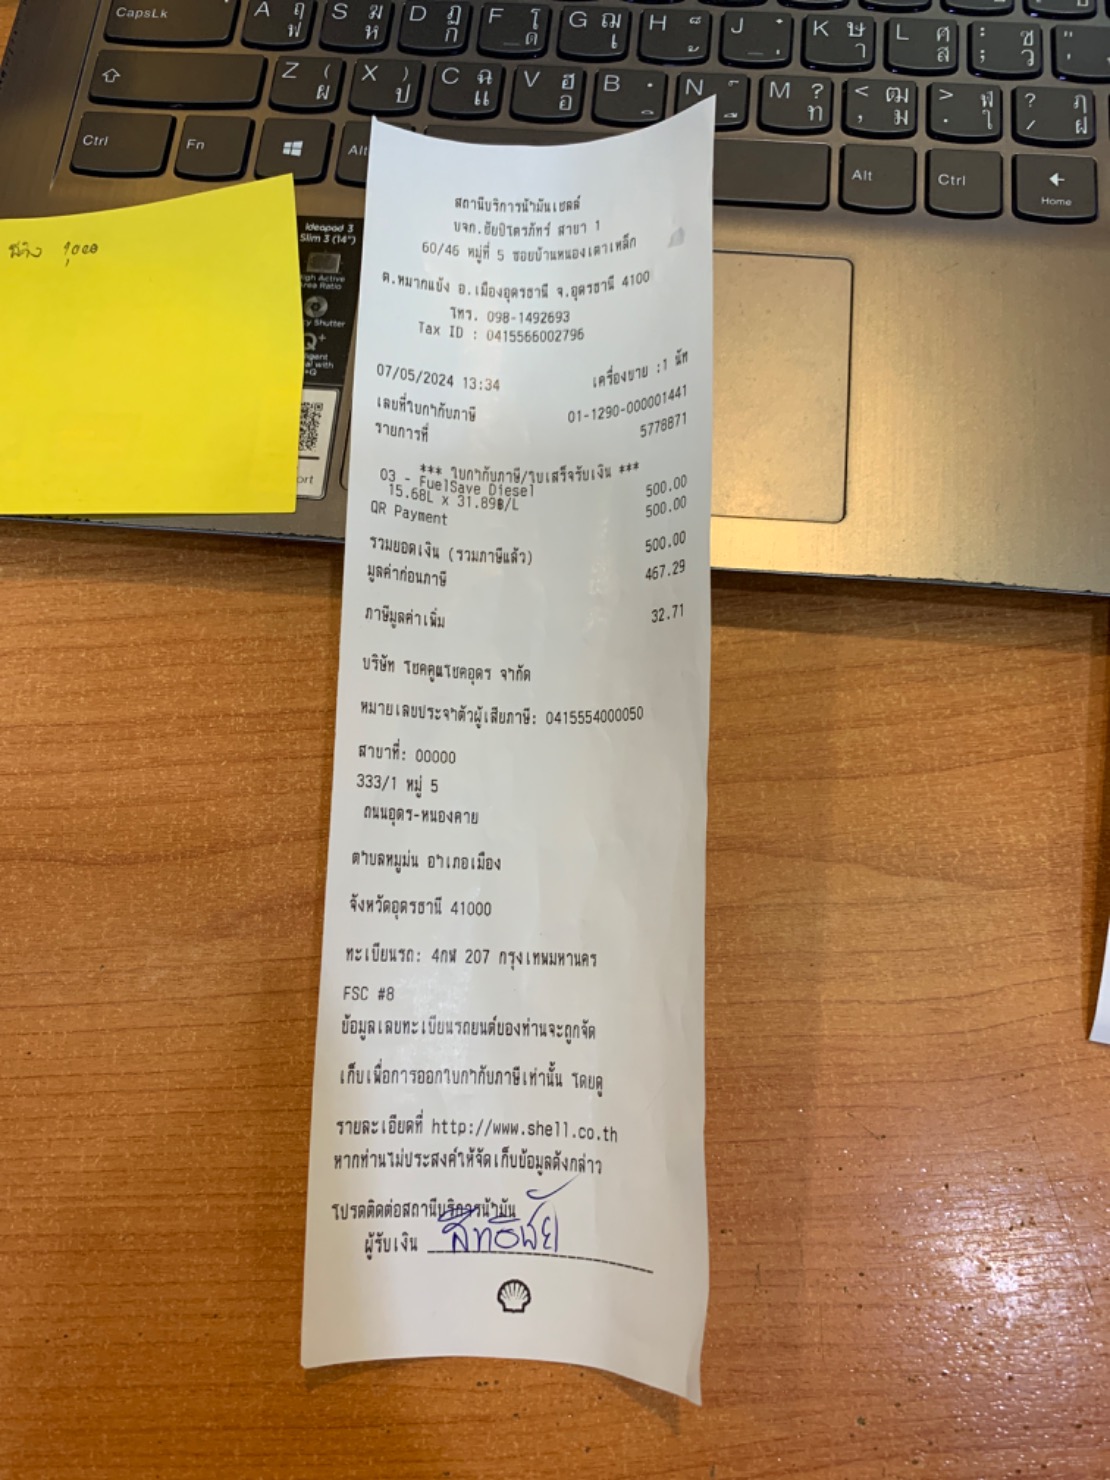 CapsLk A ฤ ฟ S ฆ ห D ฏ ก F โ ด G ฌ เ H ็ ้ J ๋ ่ K ษ า L ศ ส : ; ซ ว " '
Z ( ผ X ) ป C ฉ แ V ฮ อ B ฺ ิ N ์ ื M ? ท < , ฒ ม > . ฬ ใ ? / ฦ ฝ
Ctrl Fn Alt Alt Ctrl Home
ideapad 3
Slim 3 (14")
สถานีบริการน้ำมันเชลล์
บจก.ชัยปิโตรภัทร์ สาขา 1
60/46 หมู่ที่ 5 ซอยบ้านหนองเตาเหล็ก
ต.หมากแข้ง อ.เมืองอุดรธานี จ.อุดรธานี 4100
โทร. 098-1492693
Tax ID : 0415566002796
07/05/2024 13:34 เครื่องขาย :1 นัท
เลขที่ใบกำกับภาษี 01-1290-000001441
รายการที่ 5778871
*** ใบกำกับภาษี/ใบเสร็จรับเงิน ***
03 - FuelSave Diesel 500.00
15.68L X 31.89฿/L
QR Payment 500.00
รวมยอดเงิน (รวมภาษีแล้ว) 500.00
มูลค่าก่อนภาษี 467.29
ภาษีมูลค่าเพิ่ม 32.71
บริษัท โชคคูณโชคอุดร จำกัด
หมายเลขประจำตัวผู้เสียภาษี: 0415554000050
สาขาที่: 00000
333/1 หมู่ 5
ถนนอุดร-หนองคาย
ตำบลหมูม่น อำเภอเมือง
จังหวัดอุดรธานี 41000
ทะเบียนรถ: 4กฬ 207 กรุงเทพมหานคร
FSC #8
ข้อมูลเลขทะเบียนรถยนต์ของท่านจะถูกจัด
เก็บเพื่อการออกใบกำกับภาษีเท่านั้น โดยดู
รายละเอียดที่ http://www.shell.co.th
หากท่านไม่ประสงค์ให้จัดเก็บข้อมูลดังกล่าว
โปรดติดต่อสถานีบริการน้ำมัน
ผู้รับเงิน สิทธิชัย